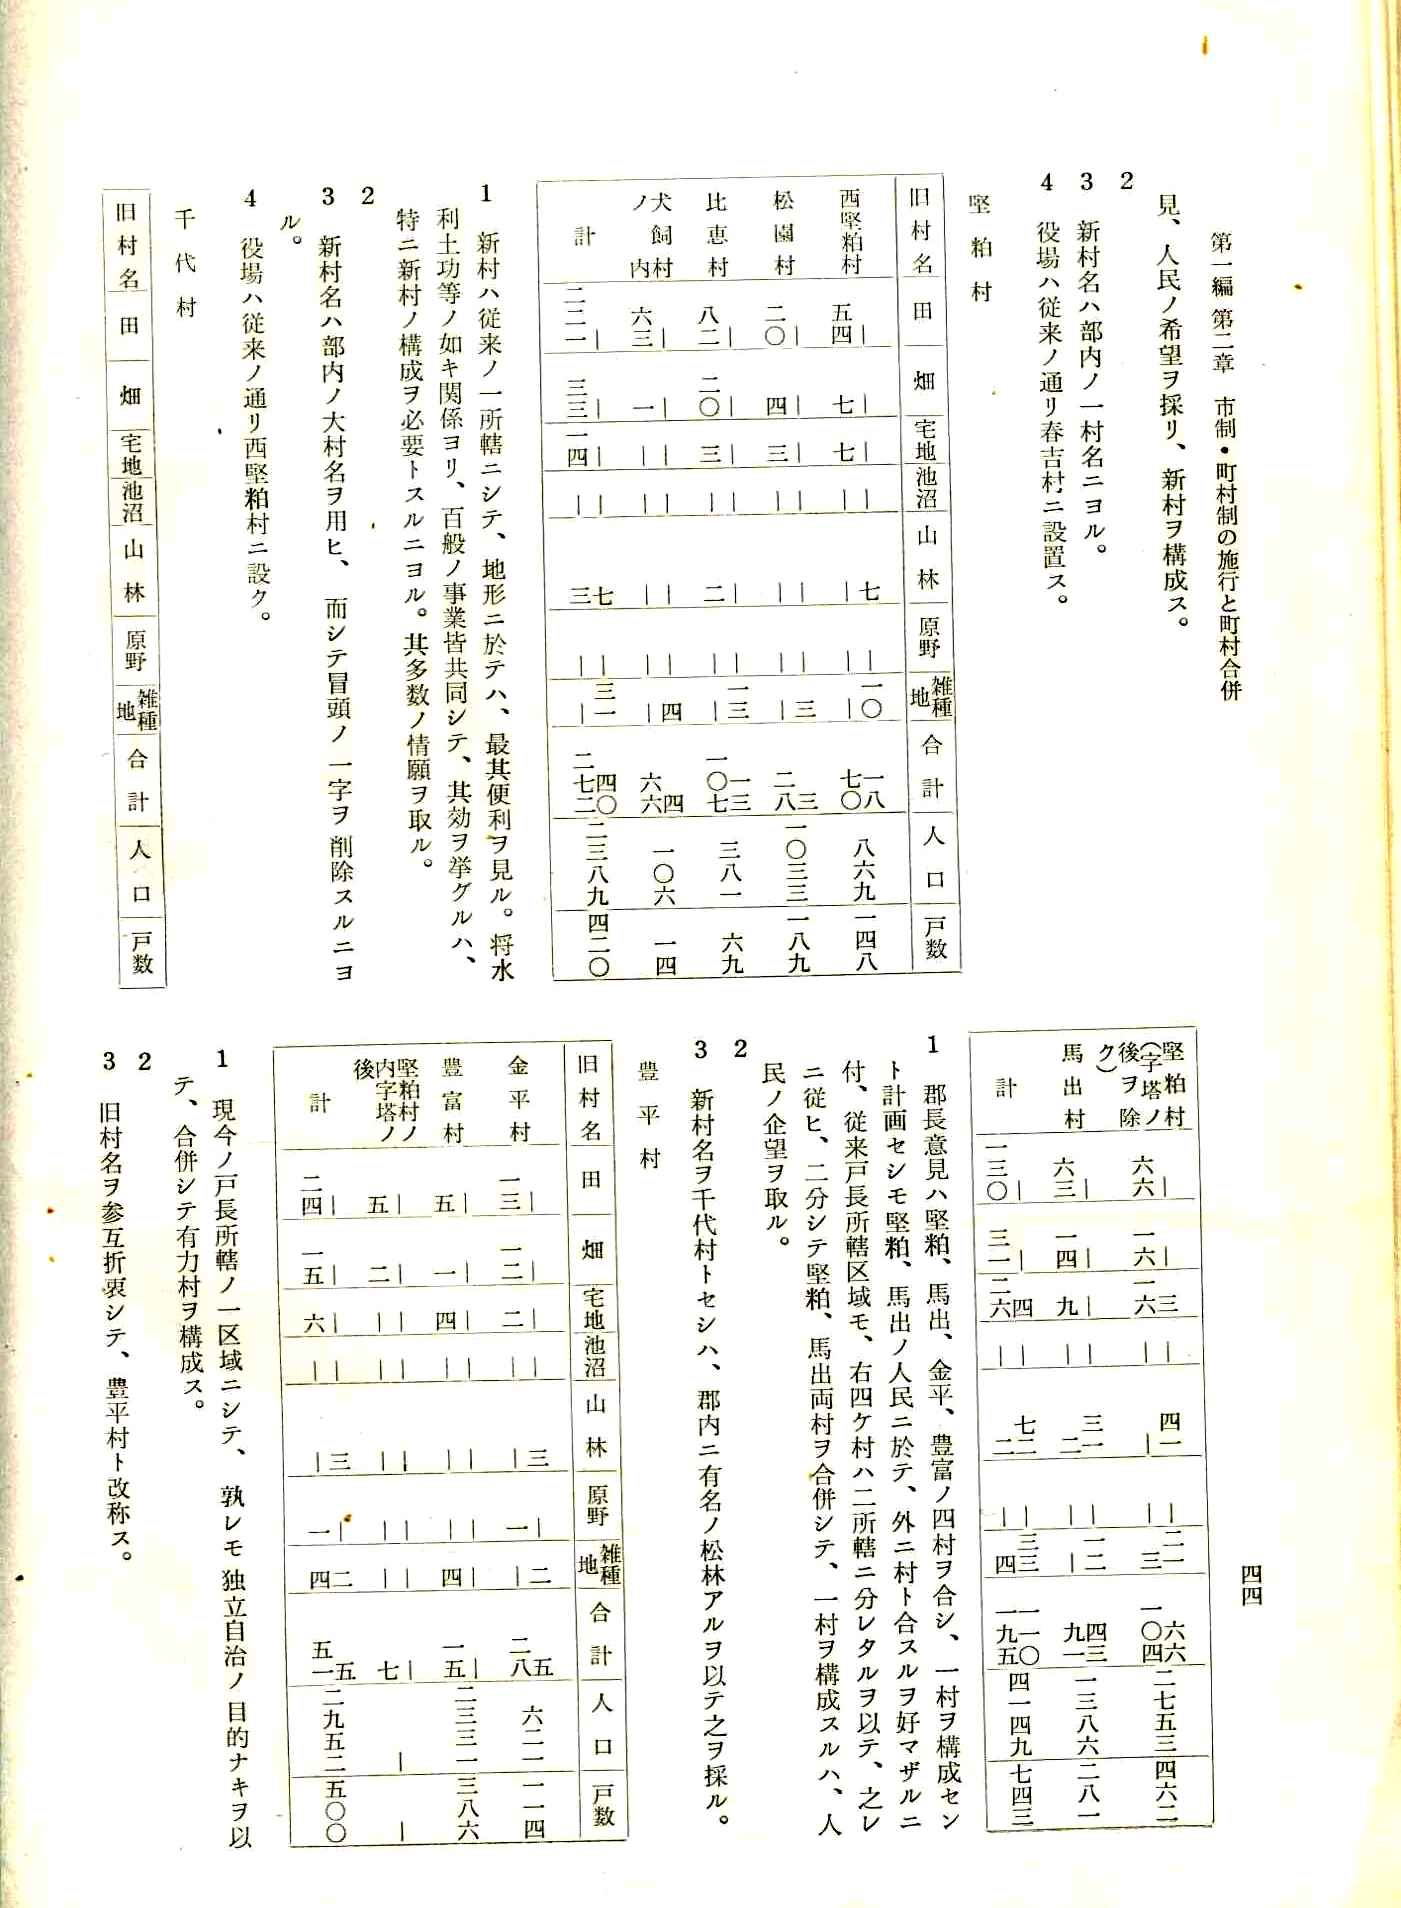 第一編 第二章　市制・町村制の施行と町村合併
見、人民ノ希望ヲ採リ、新村ヲ構成ス。
2
3　新村名ハ部内ノ一村名ニヨル。
4　役場ハ従来ノ通リ春吉村ニ設置ス。
堅粕村
旧村名 田 畑 宅地 池沼 山林 原野 雑種地 合計 人口 戸数
西堅粕村 ｜五四 ｜七 ｜七 ｜｜ 七｜ ｜｜ 一〇｜ 一八 七〇 八六九 一四八
松園村 ｜二〇 ｜四 ｜三 ｜｜ ｜｜ ｜｜ 三｜ 三 二八 一〇三三 一八九
比恵村 ｜八二 ｜二〇 ｜三 ｜｜ ｜二 ｜｜ 一三｜ 一三 一〇七 三八一 六九
犬飼村ノ内 ｜六三 ｜一 ｜｜ ｜｜ ｜｜ ｜｜ 四｜ 四 六六 一〇六 一四
計 ｜二二一 ｜三三 ｜一四 ｜｜ 七 三 ｜｜ 三一｜ 四〇 二七二 二三八九 四二〇
1　新村ハ従来ノ一所轄ニシテ、地形ニ於テハ、最其便利ヲ見ル。将水
利土功等ノ如キ関係ヨリ、百般ノ事業皆共同シテ、其効ヲ挙グルハ、
特ニ新村ノ構成ヲ必要トスルニヨル。其多数ノ情願ヲ取ル。
2
3　新村名ハ部内ノ大村名ヲ用ヒ、而シテ冒頭ノ一字ヲ削除スルニヨ
ル。
4　役場ハ従来ノ通リ西堅粕村ニ設ク。
千代村
旧村名 田 畑 宅地 池沼 山林 原野 雑種地 合計 人口 戸数
堅粕村（字塔ノ後ヲ除ク） ｜六六 ｜一六 三 一六 ｜｜ 四一｜ ｜｜ 二一 三 六六 一〇四 二七五三 四六二
馬出村 ｜六三 ｜一四 ｜九 ｜｜ 三一 二 ｜｜ 一二｜ 四三 九一 一三八六 二八一
計 ｜一三〇 ｜三一 四 二六 ｜｜ 七二 二 ｜｜ 三三 四 一一〇 一九五 四一四九 七四三
1　郡長意見ハ堅粕、馬出、金平、豊富ノ四村ヲ合シ、一村ヲ構成セン
ト計画セシモ堅粕、馬出ノ人民ニ於テ、外ニ村ト合スルヲ好マザルニ
付、従来戸長所轄区域モ、右四ケ村ハ二所轄ニ分レタルヲ以テ、之レ
ニ従ヒ、二分シテ堅粕、馬出両村ヲ合併シテ、一村ヲ構成スルハ、人
民ノ企望ヲ取ル。
2
3　新村名ヲ千代村トセシハ、郡内ニ有名ノ松林アルヲ以テ之ヲ採ル。
豊平村
旧村名 田 畑 宅地 池沼 山林 原野 雑種地 合計 人口 戸数
金平村 ｜一三 ｜一二 ｜二 ｜｜ 三｜ ｜一 二｜ 五 二八 六二一 一一四
豊富村 ｜五 ｜一 ｜四 ｜｜ ｜｜ ｜｜ ｜四 ｜一五 二三三一 三八六
堅粕村ノ内字塔ノ後 ｜五 ｜二 ｜｜ ｜｜ ｜｜ ｜｜ ｜｜ ｜七 ｜ ｜
計 ｜二四 ｜一五 ｜六 ｜｜ 三｜ ｜一 二 四 五 五一 二九五二 五〇〇
1　現今ノ戸長所轄ノ一区域ニシテ、孰レモ独立自治ノ目的ナキヲ以
テ、合併シテ有力村ヲ構成ス。
2
3　旧村名ヲ参互折衷シテ、豊平村ト改称ス。
四四